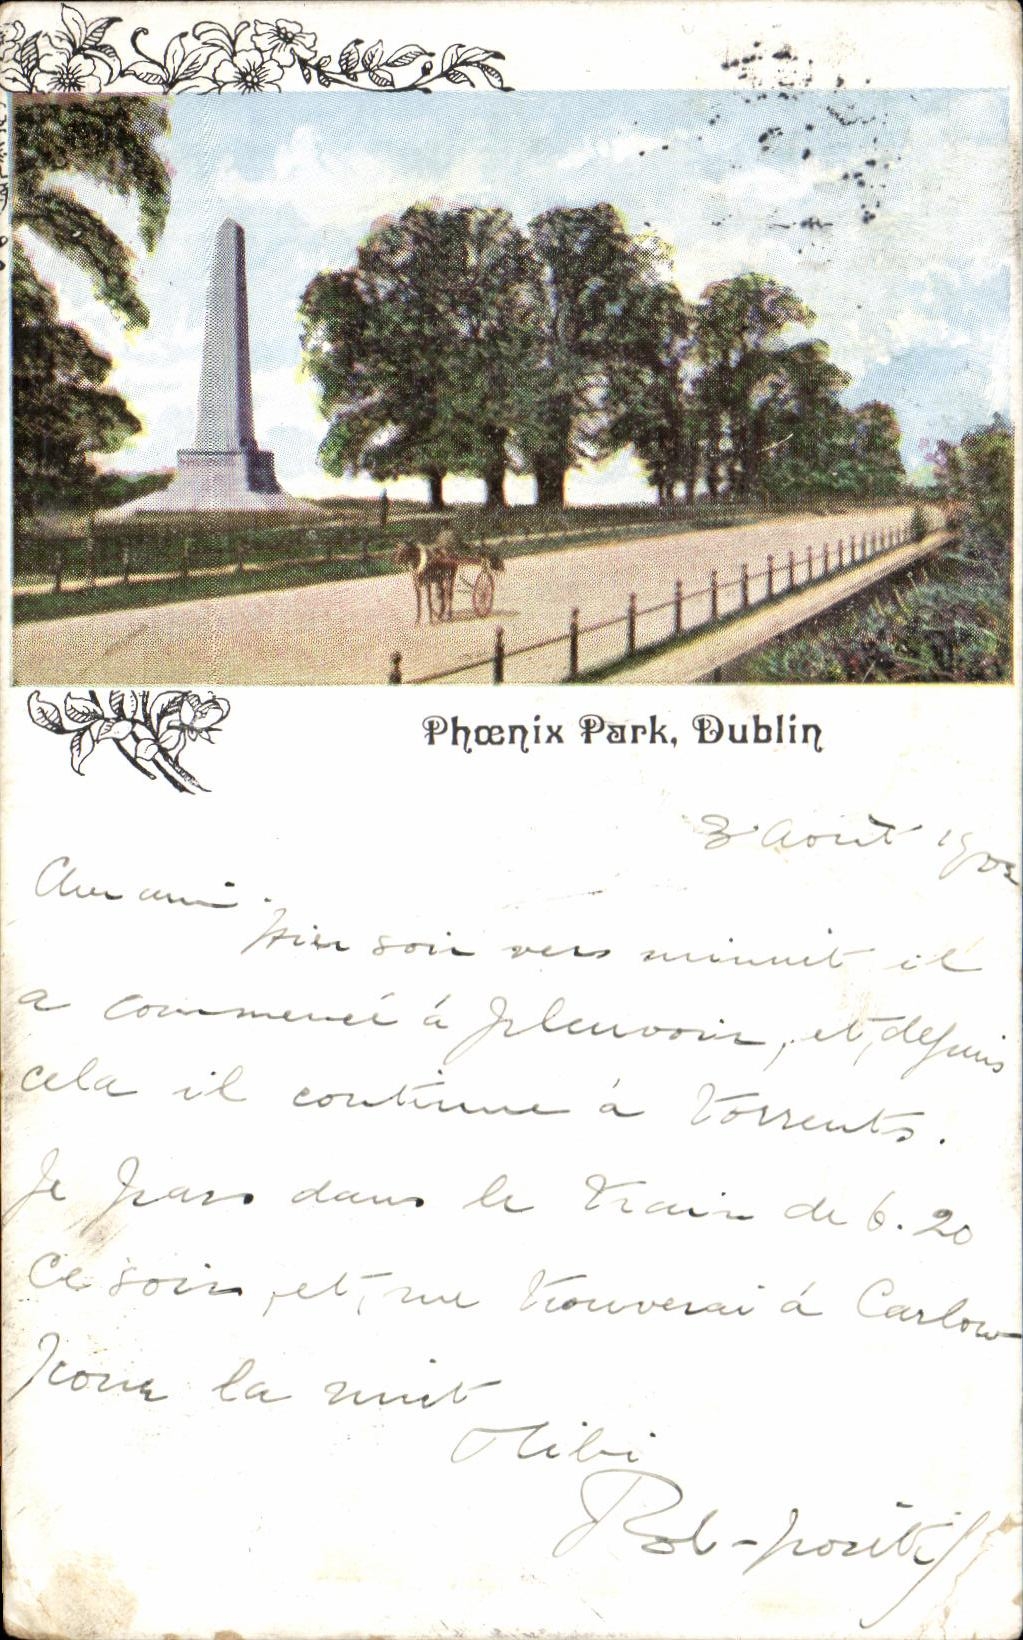 Phœnix Park, Dublin
3 Août 190
Cher ami.
Hier soir vers minuit il
a commencé à pleuvoir, et, depuis
cela il continue à torrents.
Je pars dans le train de 6.20
ce soir, et, me trouverai à Carlow
pour la nuit
Tibi
Rob